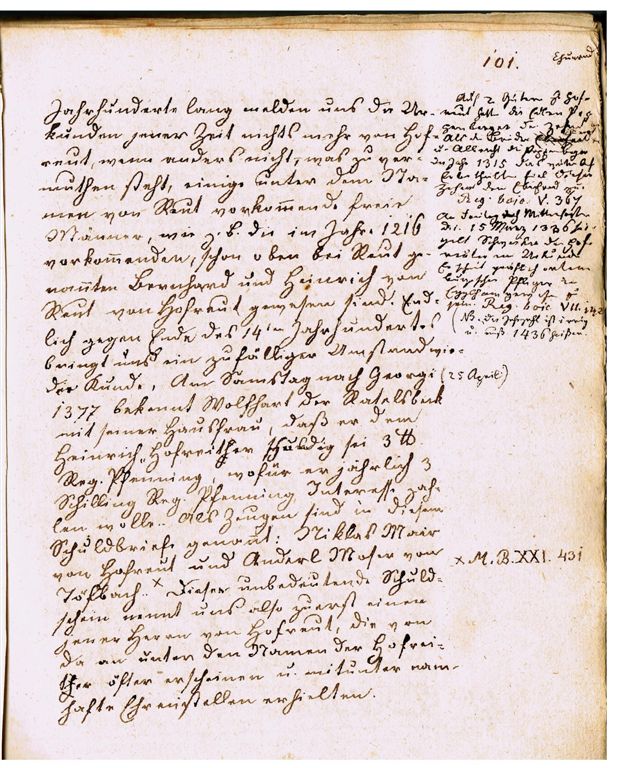 101.
Jahrhunderte lang melden uns die Ur-
kunden jener Zeit nichts mehr von Hof-
reut, wenn anders nicht, was zu ver-
muthen steht, einige unter dem Na-
men von Reut vorkommende freie
Männer, wie z. b. die im Jahre 1216
vorkommenden, schon oben bei Reut ge-
nannten Bernhard und Heinrich von
Reut von Hofreut gewesen sind. End-
lich gegen Ende des 14ten Jahrhundertes
bringt uns ein zufälliger Umstand wie-
der Kunde. Am Samstag nach Georgi (25 April)
1377 bekennt Wolfhart der Ratelsbeck
mit seiner Hausfrau, daß er dem
Heinrich Hofreither schuldig sei 3 ℔
Reg. Pfenning, wofür er jährlich 3
Schilling Reg. Pfenning Interesse zah-
len wolle. Als Zeugen sind in diesem
Schuldbriefe genannt: Niklas Mair
von Hofreut und Anderl Moser von
Tößbach. × Dieser unbedeutende Schuld-
schein nennt uns also zuerst einen
jener Herrn von Hofreut, die von
da an unter den Namen der Hofrei-
ther öfter erscheinen u. mitunter nam-
hafte Ehrenstellen erhielten.
Auf 2 Güter z Hof-
reut hatt die Edlen
u. Albrecht die
im Jahr 1315 das
Zehent den
Reg. boic. V. 367
15 März 1336
Pfleger zu
Reg. boic. VII. 142
(NB. die Jahrzahl ist irrig
u. muß 1436 heißen.
× M. B. XXI. 431